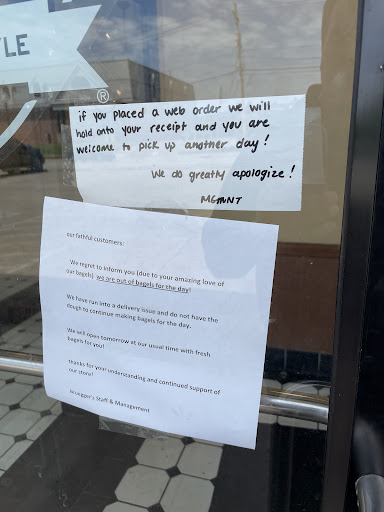 YLE
®
if you placed a web order we will
hold onto your receipt and you are
welcome to pick up another day!
We do greatly apologize!
MGMNT
our faithful customers:
We regret to inform you (due to your amazing love of
our bagels) we are out of bagels for the day!
We have run into a delivery issue and do not have the
dough to continue making bagels for the day.
We will open tomorrow at our usual time with fresh
bagels for you!
thanks for your understanding and continued support of
our store!
Bruegger's Staff & Management